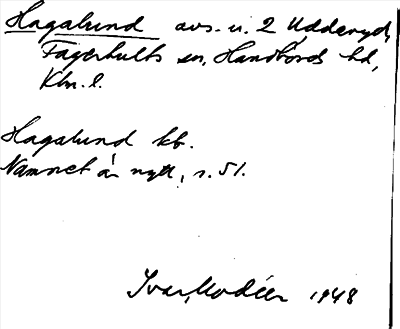 Hagalund avs. u. 2 Uddaryd,
Fagerhults sn, Handbörds hd,
Klm. l.
Hagalund kb.
Namnet är nytt, s. 51.
Ivar Modéer 1948